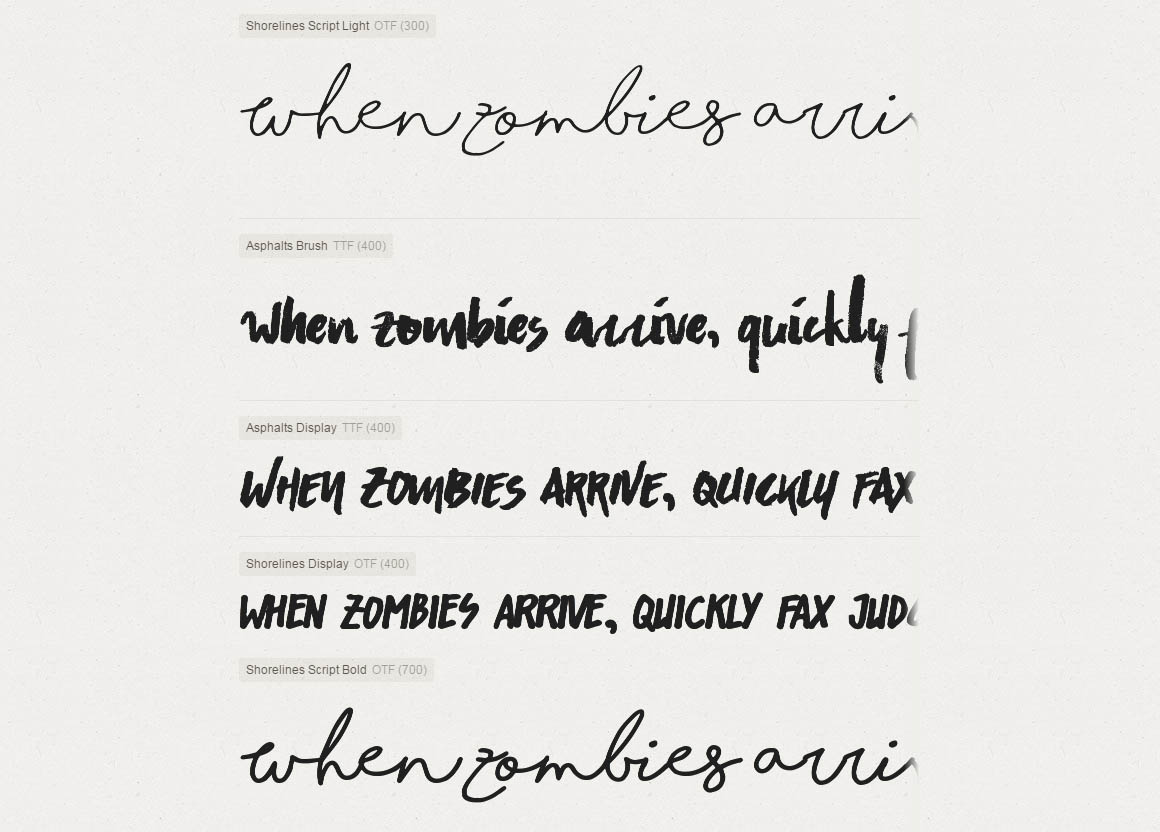 Shorelines Script Light OTF (300)
when zombies arri
Asphalts Brush TTF (400)
When zombies arrive, quickly f
Asphalts Display TTF (400)
WHEN ZOMBIES ARRIVE, QUICKLY FAX
Shorelines Display OTF (400)
WHEN ZOMBIES ARRIVE, QUICKLY FAX JUD
Shorelines Script Bold OTF (700)
when zombies arri